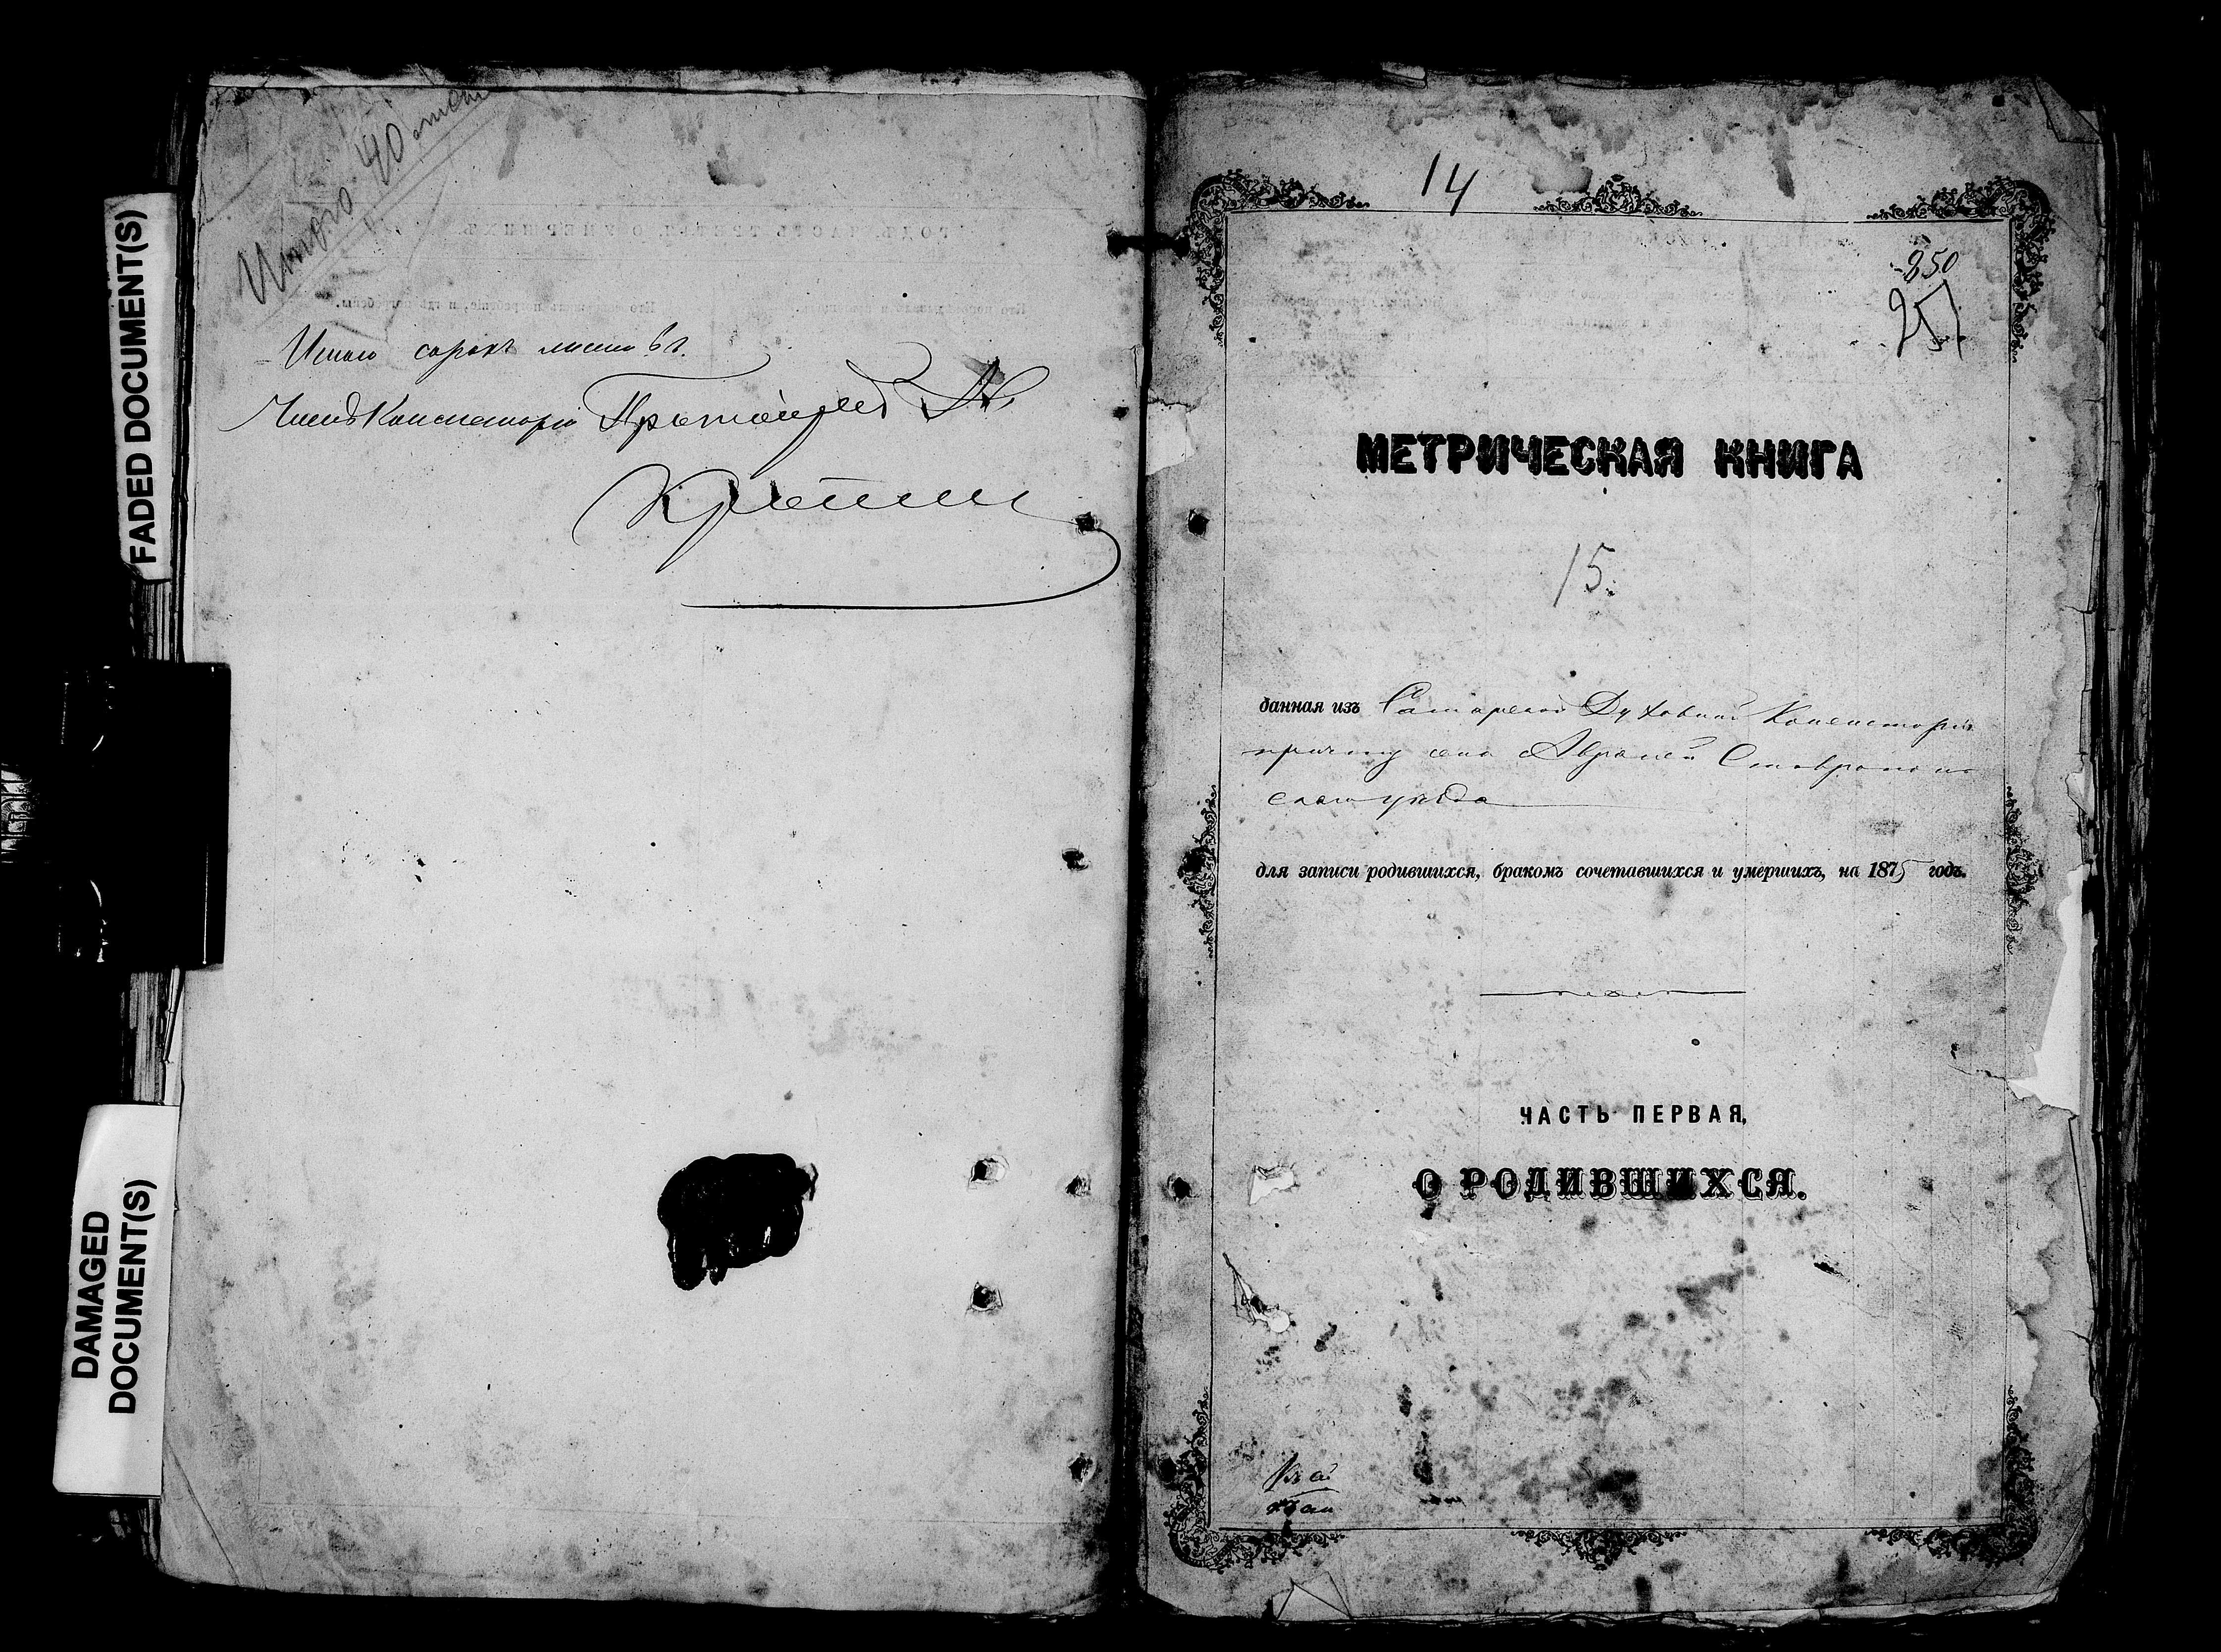 FADED DOCUMENT(S)
DAMAGED
DOCUMENT(S)
Итого 40 лист
Итого сорокъ листовъ.
Членъ Консисторіи Протоіерей
14
250
251
МЕТРИЧЕСКАЯ КНИГА
15.
данная изъ Самарской Духовной Консисторіи
причту села Ставрополь
скаго уѣзда
для записи родившихся, бракомъ сочетавшихся и умершихъ, на 1875 годъ.
ЧАСТЬ ПЕРВАЯ,
О РОДИВШИХСЯ.